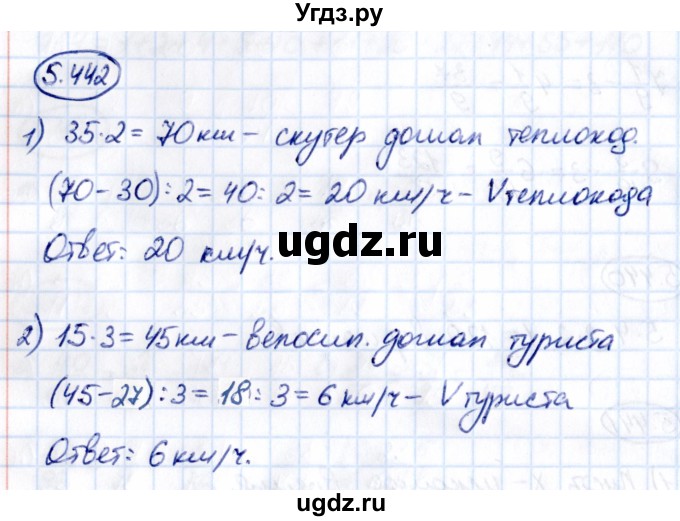 Угдз.ру
5.442
1) 35·2 = 70 км – скутер догнал теплоход.
(70 – 30) : 2 = 40 : 2 = 20 км/ч – V теплохода
Ответ: 20 км/ч.
ugdz.ru
2) 15·3 = 45 км – велосип. догнал туриста
(45 – 27) : 3 = 18 : 3 = 6 км/ч – V туриста
Ответ: 6 км/ч.
ugdz.ru
ugdz.ru